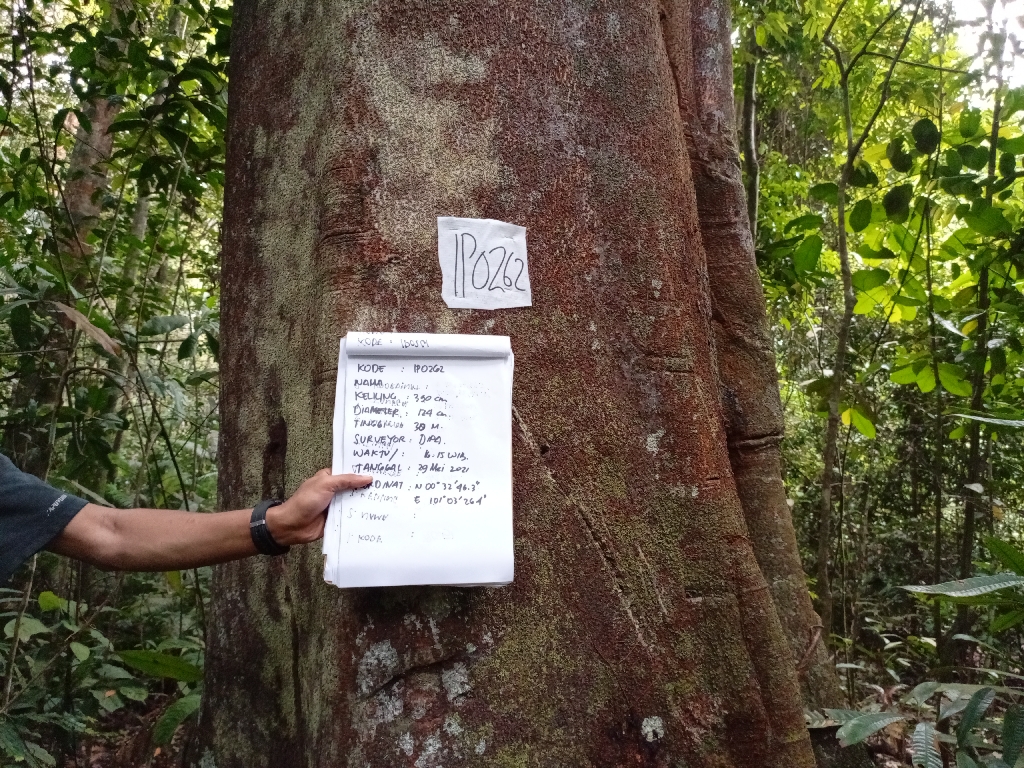 IP0262
KODE :
KODE : IP0262
NAMA
KELILING : 390 cm
DIAMETER : 124 cm
TINGGI : 38 M.
SURVEYOR :
WAKTU / 15 WIB.
TANGGAL : 29 Mei 2021
KORDINAT : N 00° 32' 46.3"
E 101° 03' 26.4"
KODE :